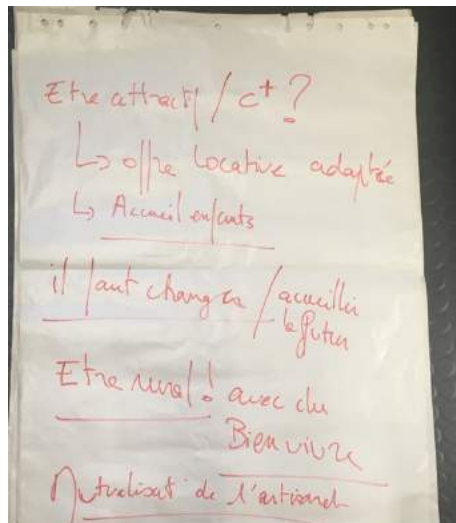 Etre attractif / c+ ?
↳ offre locative adaptée
↳ Accueil enfants
il faut changer / accueillir
le futur
Etre rural ! avec du
Bien vivre
Mutualisat° de l'artisanat